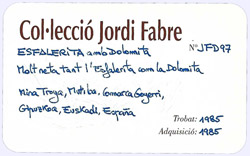 Col·lecció Jordi Fabre
ESFALERITA amb Dolomita
Nº JFD97
Molt neta tant l'Esfalerita com la Dolomita
Mina Troya, Mutiloa, Comarca Goyerri,
Gipuzkoa, Euskadi, España
Trobat: 1985
Adquisició: 1985